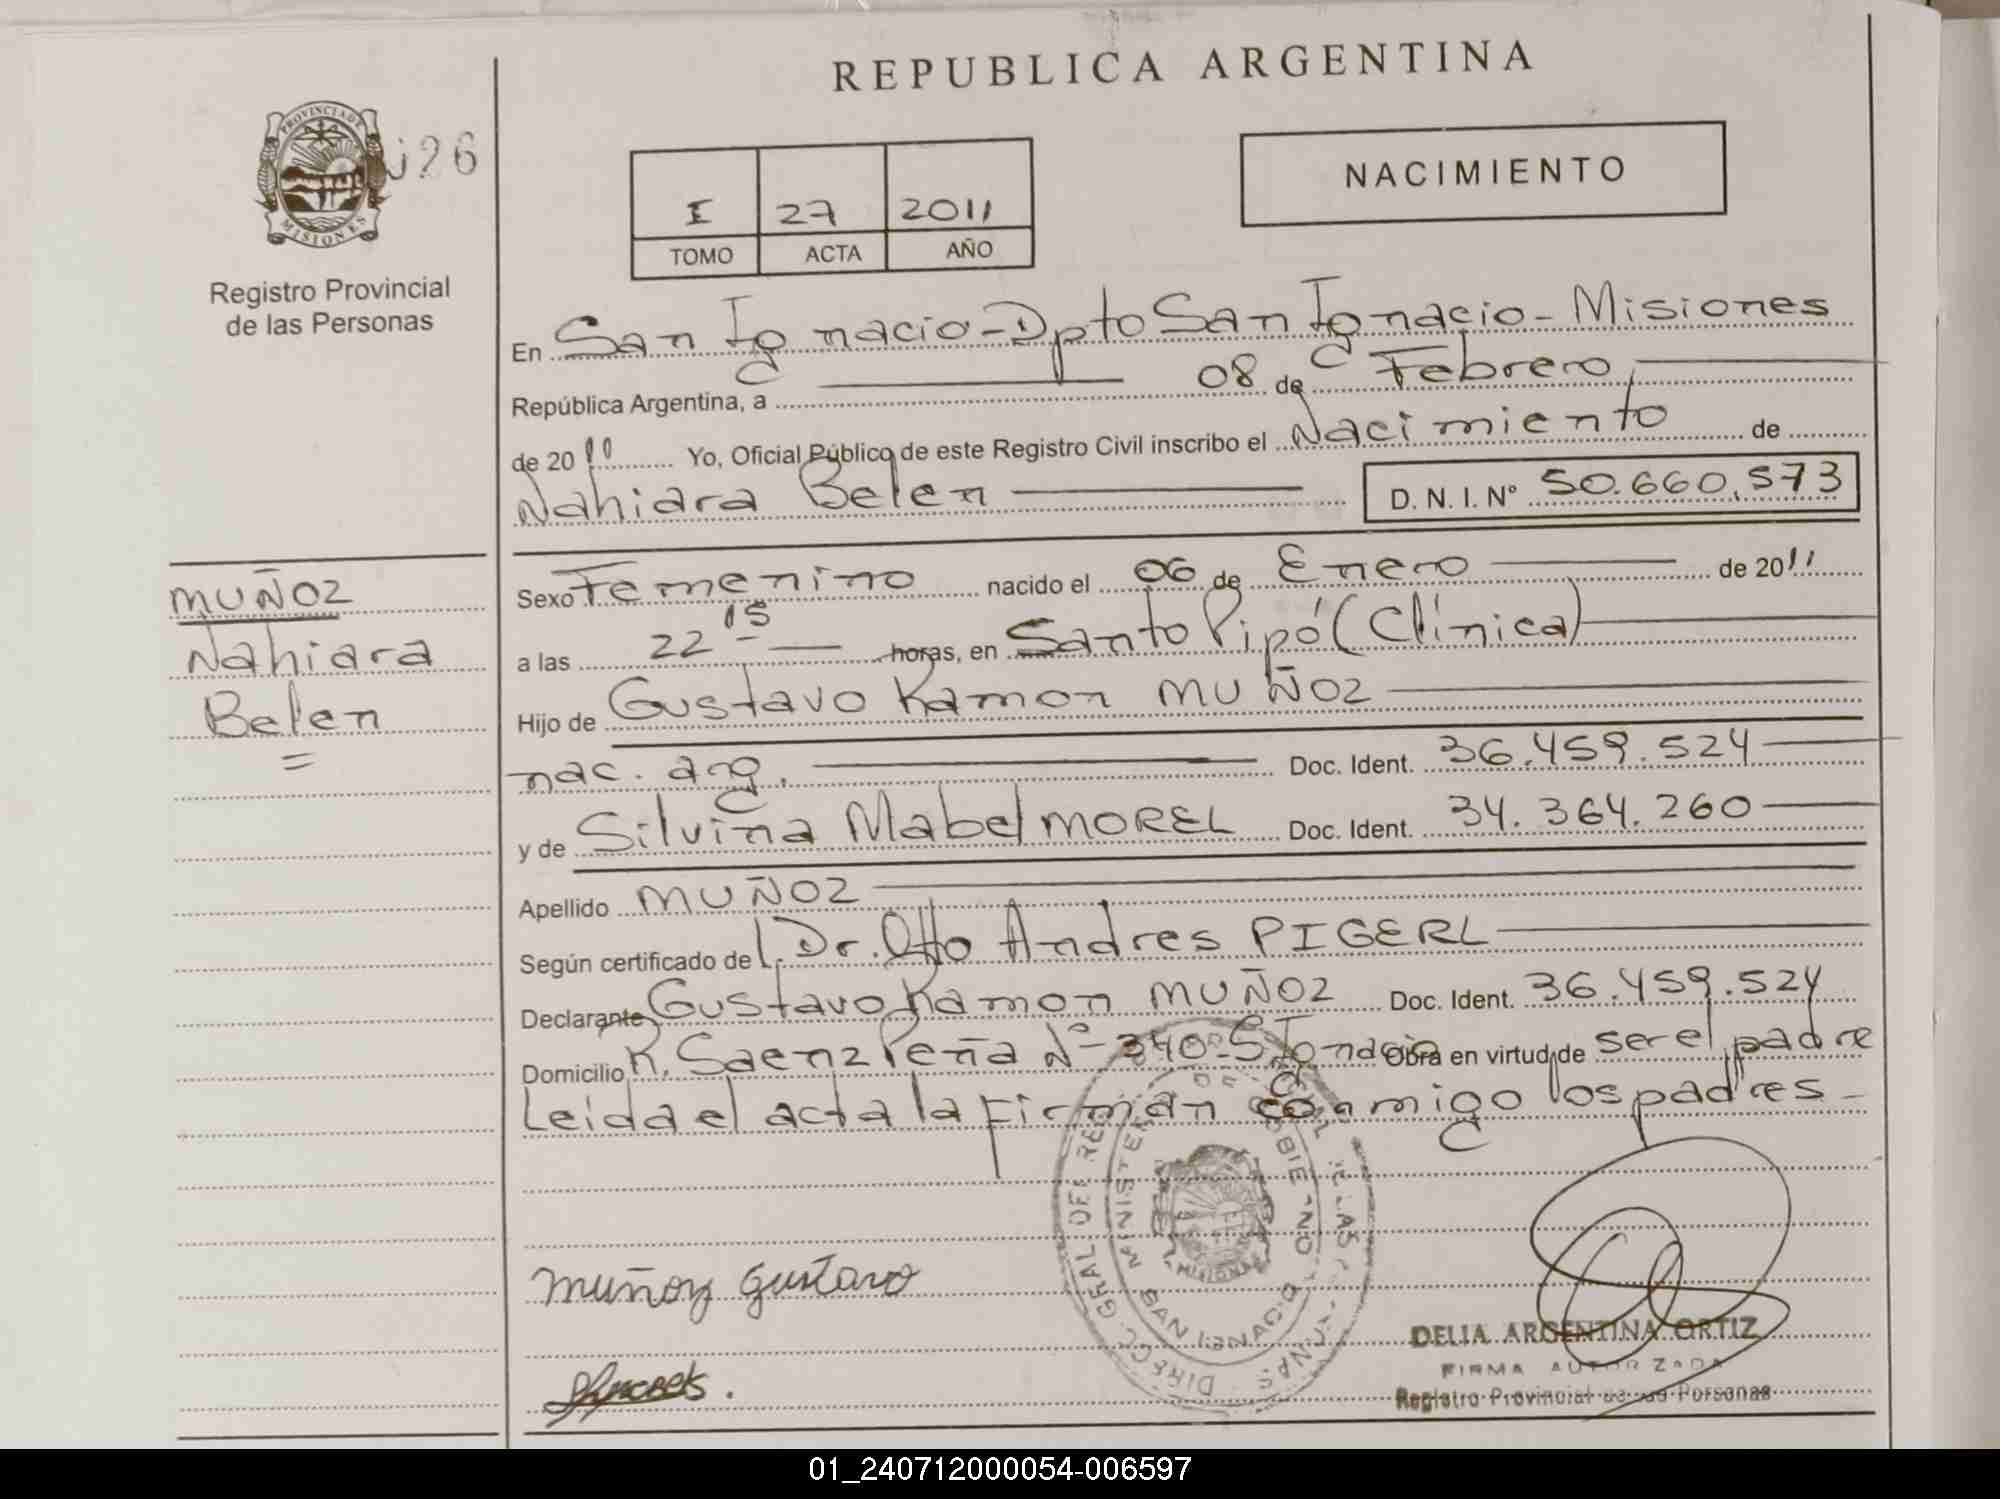 REPUBLICA ARGENTINA
PROVINCIA DE
MISIONES
26
Registro Provincial
de las Personas
I 27 2011
TOMO ACTA AÑO
NACIMIENTO
En San Ignacio - Dpto San Ignacio - Misiones
República Argentina, a 08 de Febrero
de 2011 Yo, Oficial Público de este Registro Civil inscribo el Nacimiento de
Nahiara Belen D. N. I. N° 50.660.573
MUÑOZ
Nahiara
Belen
=
Sexo Femenino nacido el 06 de Enero de 2011
a las 22 15 horas, en Santo Pipó (Clínica)
Hijo de Gustavo Ramon MUÑOZ
nac. arg. Doc. Ident. 36.459.524
y de Silvina Mabel MOREL Doc. Ident. 34.364.260
Apellido MUÑOZ
Según certificado de l. Dr. Otto Andres PIGERL
Declarante Gustavo Ramon MUÑOZ Doc. Ident. 36.459.524
Domicilio R. Saenz Peña N° 340 - S. Ignacio Obra en virtud de ser el padre
Leida el acta la firman conmigo los padres -
Muñoz Gustavo
DIREC. GRAL DEL REG
MINISTER DE GOBIERNO
SAN IGNACIO
MISIONES
DELIA ARGENTINA ORTIZ
FIRMA AUTORIZADA
Registro Provincial de las Personas
01_240712000054-006597